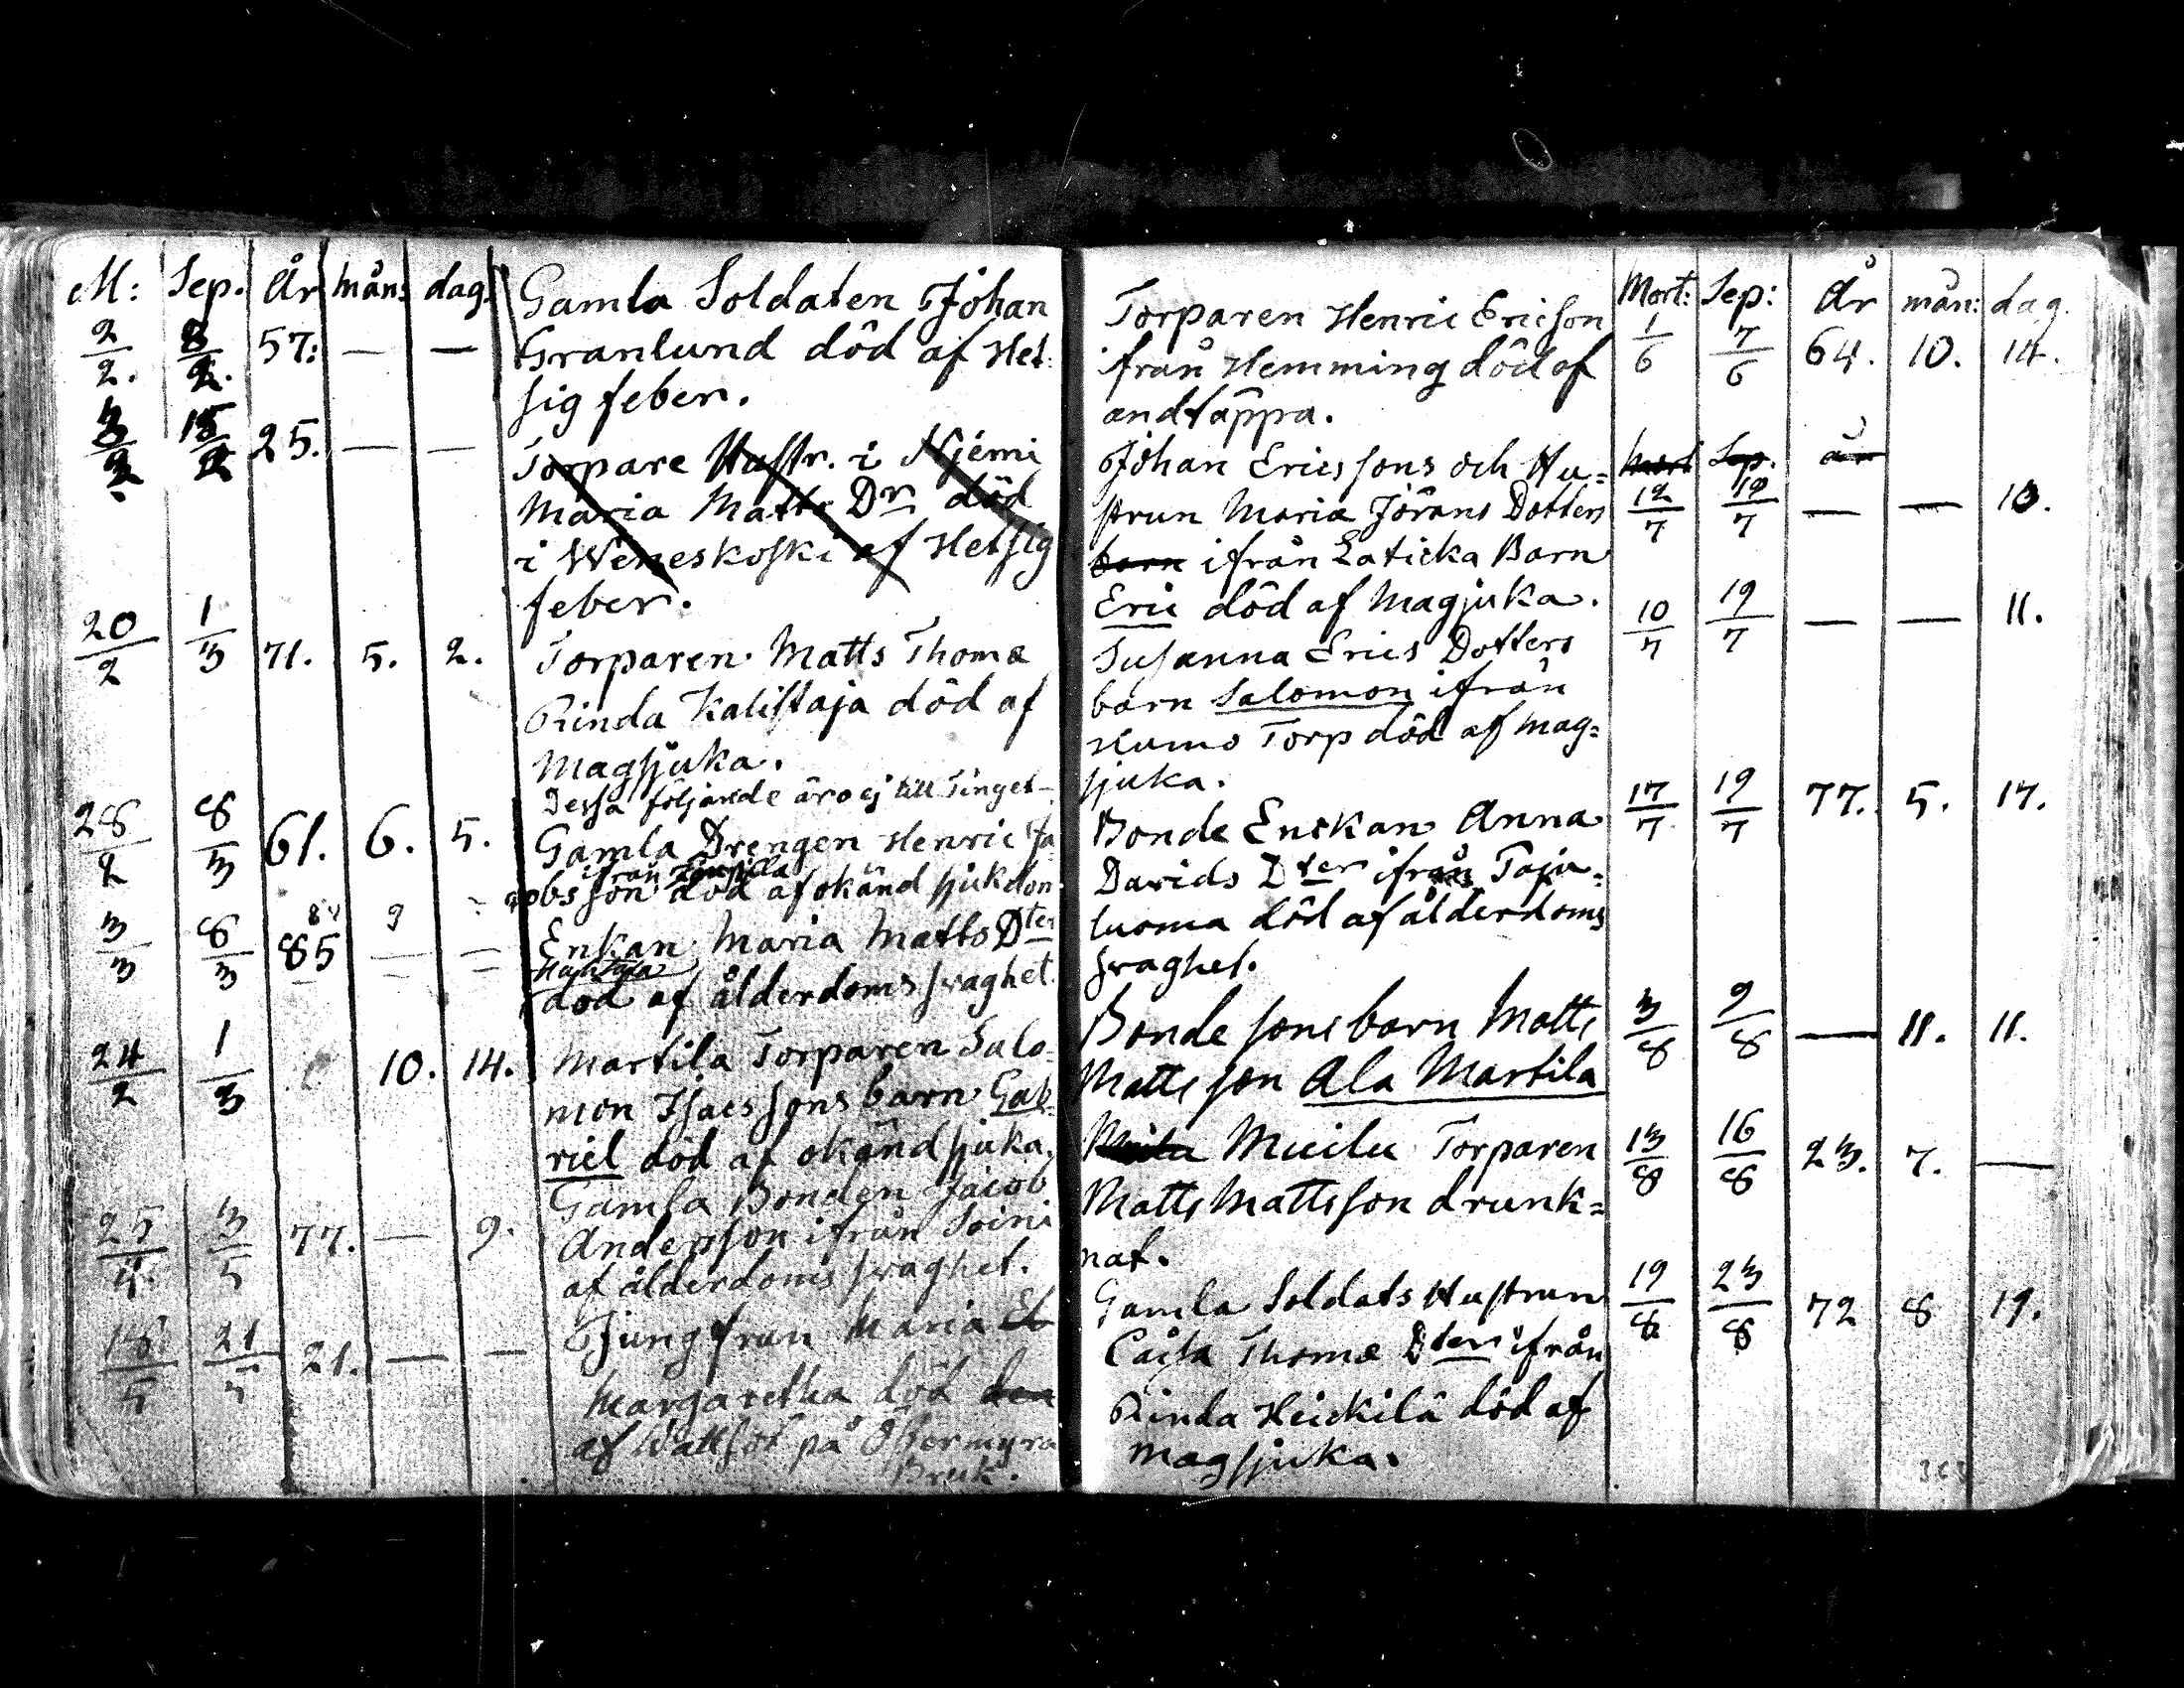 M: Sep. År måns dag. Gamla Soldaten Johan
2/2. 8/2. 57: — — Granlund död af Het-
sig feber.
3/2 15/2 25. — — Torpare Hustr. i Njemi
Maria Matts Dr död
i Weneskoski af Hetsig
feber.
20/2 1/3 71. 5. 2. Torparen Matts Thomæ
Rinda Kalistaja död af
Magsjuka.
Dessa följande äro ej till Tinget
28/2 8/3 61. 6. 5. Gamla Drengen Henric Ja
ifrån
cobsson död af okänd sjukdom
3/3 8/3 85 84 9 Enkan Maria Matts Dter
död af ålderdoms svaghet.
24/2 1/3 10. 14. Martila Torparen Salo-
mon Isacssons barn Gab-
riel död af okänd sjuka.
25/4 3/5 77. — 9. Gamla Bonden Jacob
Andersson ifrån Soini
af ålderdoms svaghet.
18/5 21/5 21. — — Jungfrun Maria El
Margaretha död den
af Wattsot på Östermyra
Bruk.
Mort: Sep: År mån: dag.
Torparen Henric Ericson 1/6 7/6 64. 10. 14.
ifrån Hemming död af
andtäppa.
Johan Ericssons och Hu= Mort Sep. år
strun Maria Jörans Dotters 12/7 19/7 — — 10.
barn ifrån Laticka Barn
Eric död af Magsjuka.
Susanna Erics Dotters 10/7 19/7 — — 11.
barn Salomon ifrån
Humo Torp död af mag=
sjuka.
Bonde Enckan Anna 17/7 19/7 77. 5. 17.
Davids Dter ifrån Taja=
luoma död af ålderdoms
svaghet.
Bonde sons barn Matts 3/8 9/8 — 11. 11.
Matts son Ala Martila
Muilu Torparen 13/8 16/8 23. 7. —
Matts Mattsson drunk=
nat.
Gamla Soldats Hustrun 19/8 23/8 72 8 19.
Caisa Thomæ Dter ifrån
Rinda Heickilä död af
magsjuka.
363